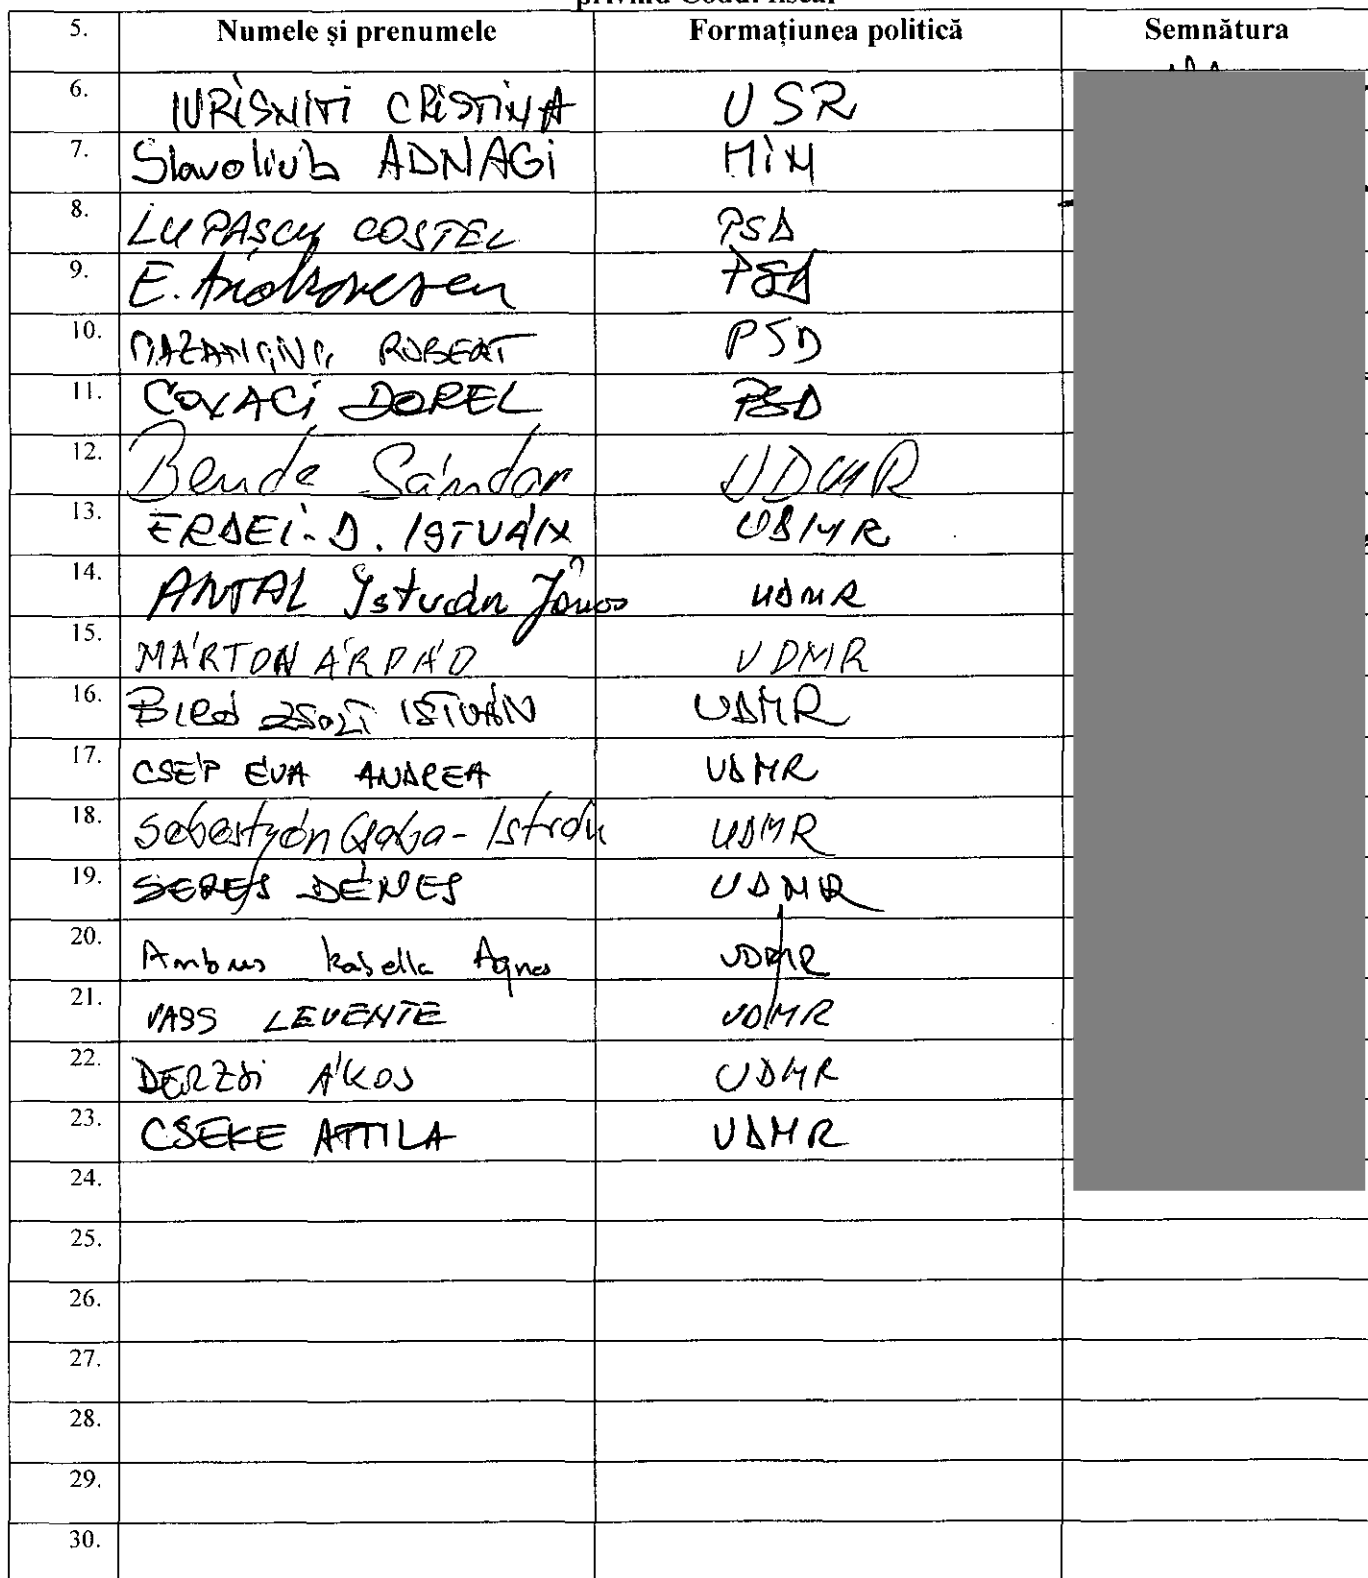 privind Codul fiscal
5. Numele și prenumele Formațiunea politică Semnătura
6. IURISNITI CRISTINA USR
7. Slavoliub ADNAGI MIN
8. LUPASCU COSTEL PSD
9. E. Andronescu PSD
10. ROBERT PSD
11. COVACI DOREL PSD
12. Bende Sándor UDMR
13. ERDEI-D. ISTVÁN UDMR
14. ANTAL István János UDMR
15. MÁRTON ÁRPÁD UDMR
16. BIRÓ ZSOLT ISTVÁN UDMR
17. CSÉP EVA ANDREA UDMR
18. Sebestyén Csaba-István UDMR
19. SERES DÉNES UDMR
20. Ambrus Izabella Agnes UDMR
21. VASS LEVENTE UDMR
22. DERZSI ÁKOS UDMR
23. CSEKE ATTILA UDMR
24.
25.
26.
27.
28.
29.
30.